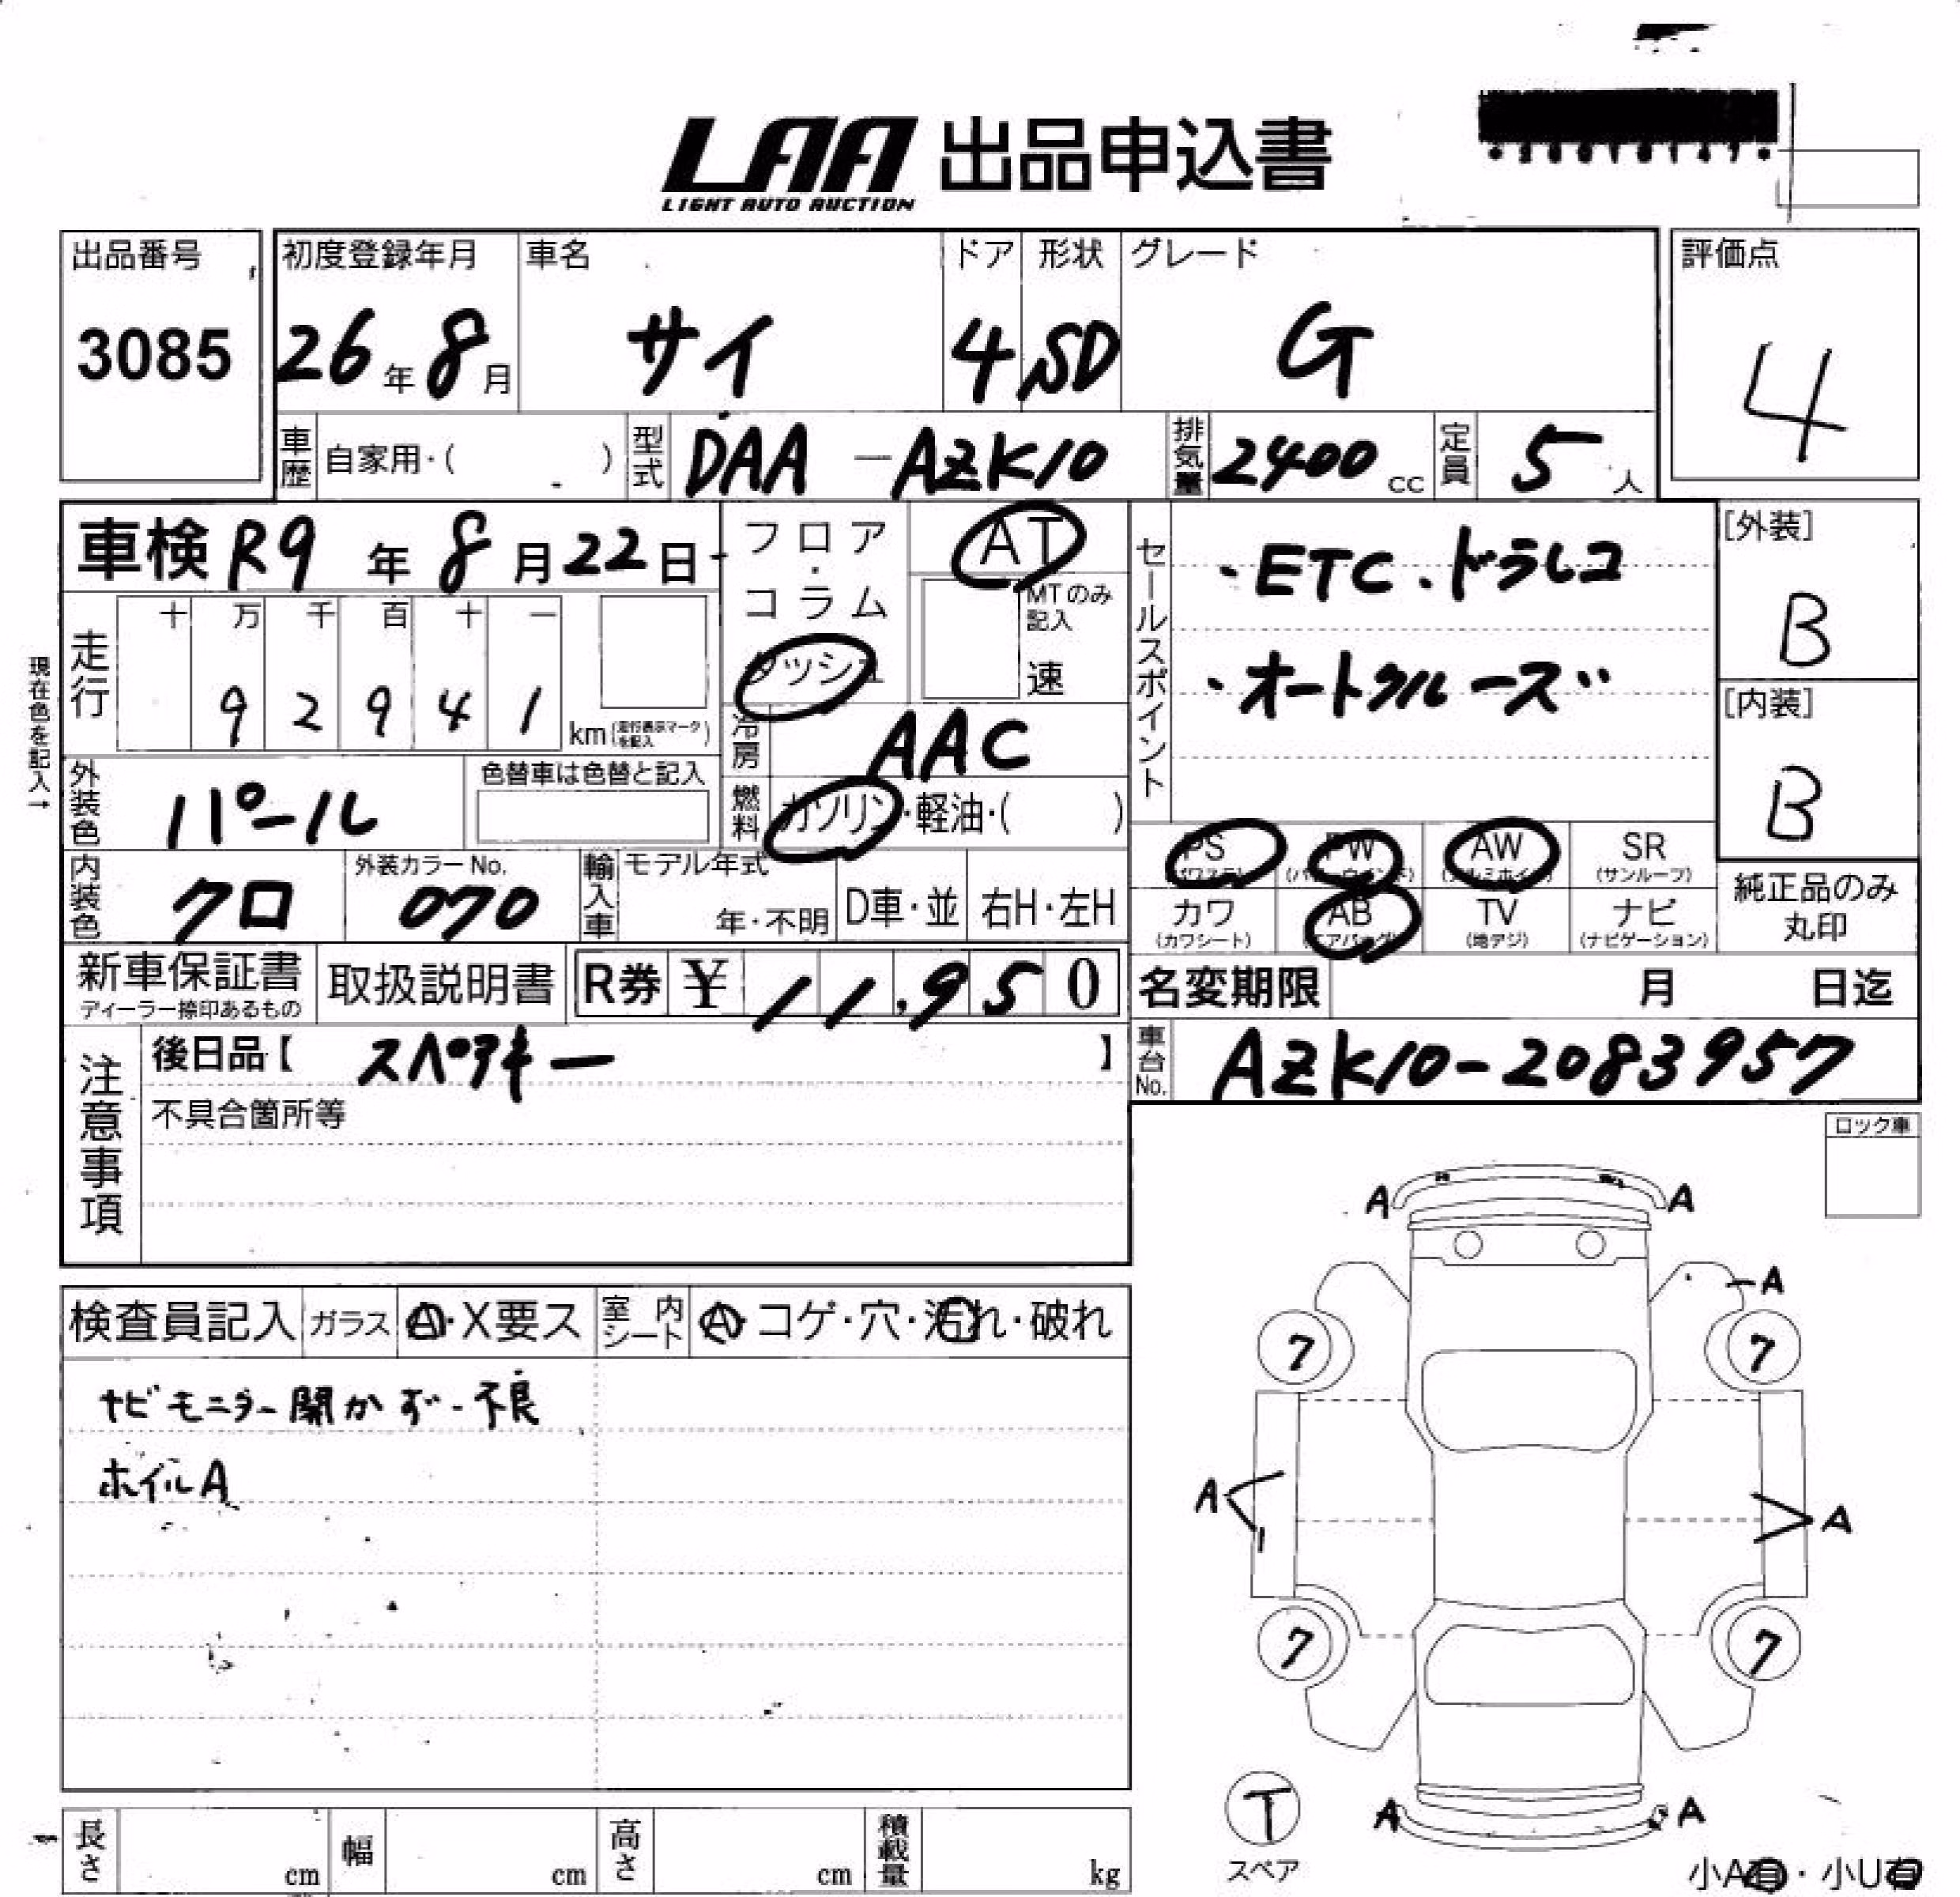 LAA 出品申込書
LIGHT AUTO AUCTION
出品番号
3085
初度登録年月
26年8月
車名
サイ
ドア
4
形状
SD
グレード
G
評価点
4
車歴 自家用・( )
型式 DAA-AZK10
排気量 2400cc
定員 5人
車検 R9年8月22日
フロア・コラム
ダッシュ
AT
MTのみ記入
速
走行 十 万 千 百 十 一
9 2 9 4 1 km(走行表示マークを記入)
現在色を記入→
冷房 AAC
燃料 ガソリン・軽油・( )
外装色 パール
色替車は色替と記入
内装色 クロ
外装カラーNo.
070
輸入車
モデル年式
年・不明
D車・並
右H・左H
セールスポイント
・ETC.ドラレコ
・オートクルーズ
[外装]
B
[内装]
B
PS (パワステ)
PW (パワーウインド)
AW (アルミホイル)
SR (サンルーフ)
カワ (カワシート)
AB (エアバッグ)
TV (地デジ)
ナビ (ナビゲーション)
純正品のみ丸印
新車保証書
ディーラー捺印あるもの
取扱説明書
R券 ¥ 11,950
名変期限 月 日迄
車台No. AZK10-2083957
注意事項
後日品【 スペアキー 】
不具合箇所等
ロック車
検査員記入
ガラス A・X要ス
室内シート A・コゲ・穴・汚れ・破れ
ナビモニター開かず・不良
ホイルA
A A
A
7 7
A A
7 7
A A
T
スペア
小A有・小U有
長さ cm
幅 cm
高さ cm
積載量 kg